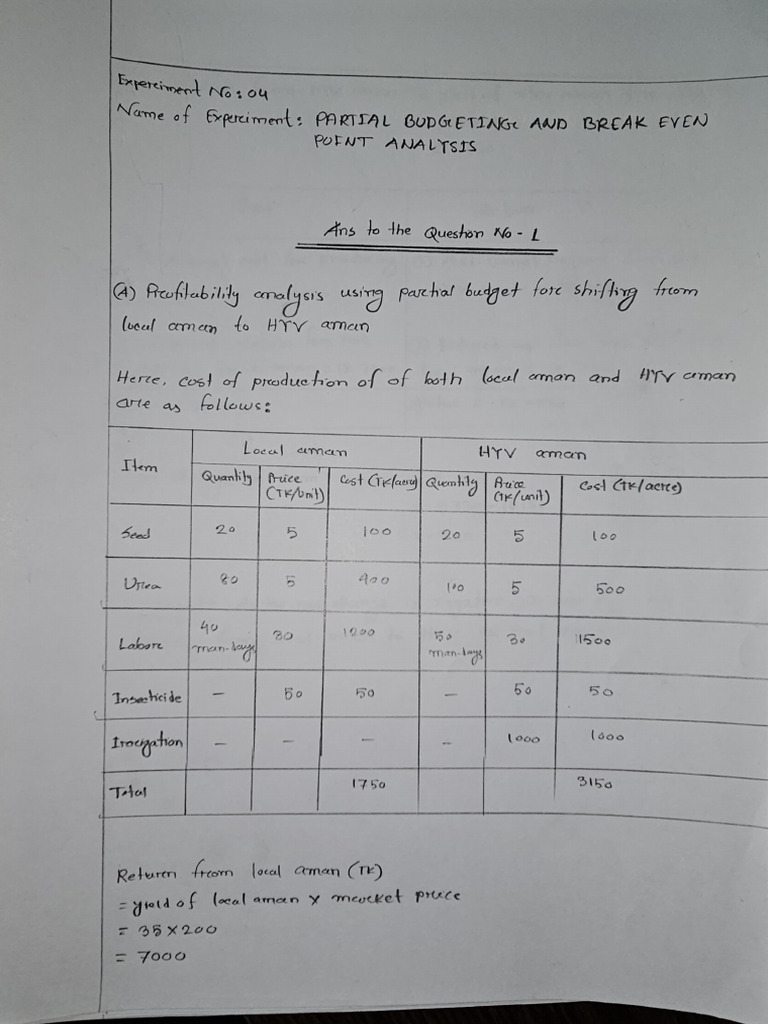 Experiment No: 04
Name of Experiment: PARTIAL BUDGETING AND BREAK EVEN
POINT ANALYSIS
Ans to the Question No - 1
(A) Profitability analysis using partial budget fore shifting from
local aman to HYV aman
Here, cost of production of of both local aman and HYV aman
are as follows:
Item Local aman HYV aman
Quantity Price (TK/unit) Cost (TK/acre) Quantity Price (TK/unit) Cost (TK/acre)
Seed 20 5 100 20 5 100
Urea 80 5 400 100 5 500
Labore 40 man-days 30 1200 50 man-days 30 1500
Insecticide - 50 50 - 50 50
Irrigation - - - - 1000 1000
Total 1750 3150
Return from local aman (TK)
= yield of local aman x market price
= 35 x 200
= 7000